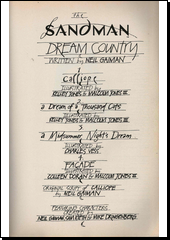 The
SANDMAN
DREAM COUNTRY
WRITTEN by NEIL GAIMAN
1
Calliope
ILLUSTRATED BY
KELLEY JONES & MALCOLM JONES III
2
a Dream of a Thousand Cats
ILLUSTRATED BY
KELLEY JONES & MALCOLM JONES III
3
a Midsummer Night's Dream
ILLUSTRATED BY
CHARLES VESS
4
FAÇADE
ILLUSTRATED BY
COLLEEN DORAN & MALCOLM JONES III
ORIGINAL SCRIPT of CALLIOPE
by NEIL GAIMAN
FEATURING CHARACTERS
CREATED BY
NEIL GAIMAN, SAM KIETH & MIKE DRINGENBERG